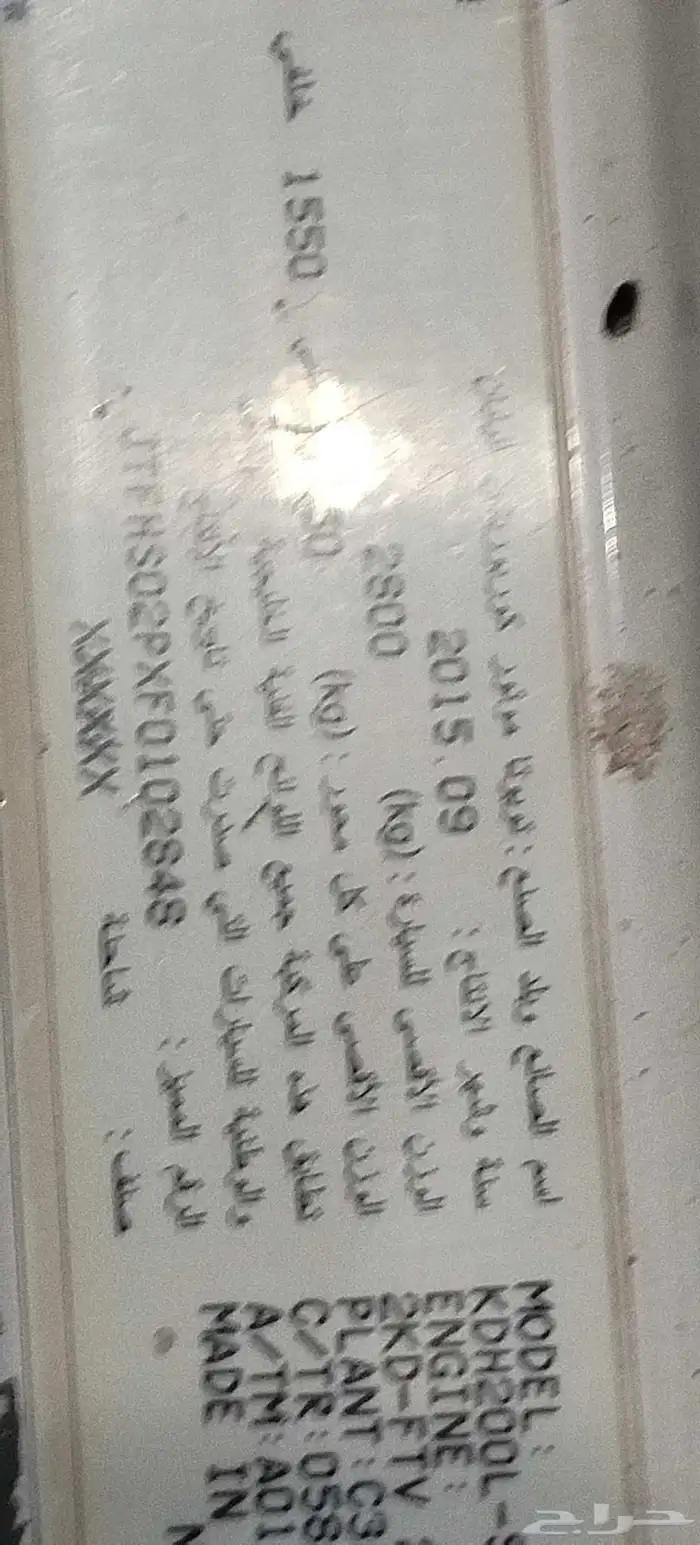 اسم الصانع وبلد الصنع: تويوتا موتور كوربوريشن اليابان
سنة وشهر الانتاج: 2015.09
الوزن الأقصى للسيارة: (kg) 2800
الوزن الأقصى على كل محور: (kg)
خلفي 1550
تطابق هذه المركبة جميع اللوائح الفنية الخليجية
والوطنية للسيارات التي صدرت حتى تاريخ الأنتاج
الرقم المميز: JTFHS02PXF0102848
صنف: شاحنة XXXXXX
MODEL:
KDH200L-S
ENGINE:
2KD-FTV
PLANT: C3
C/TR: 058
A/TM: A01
MADE IN
حراج